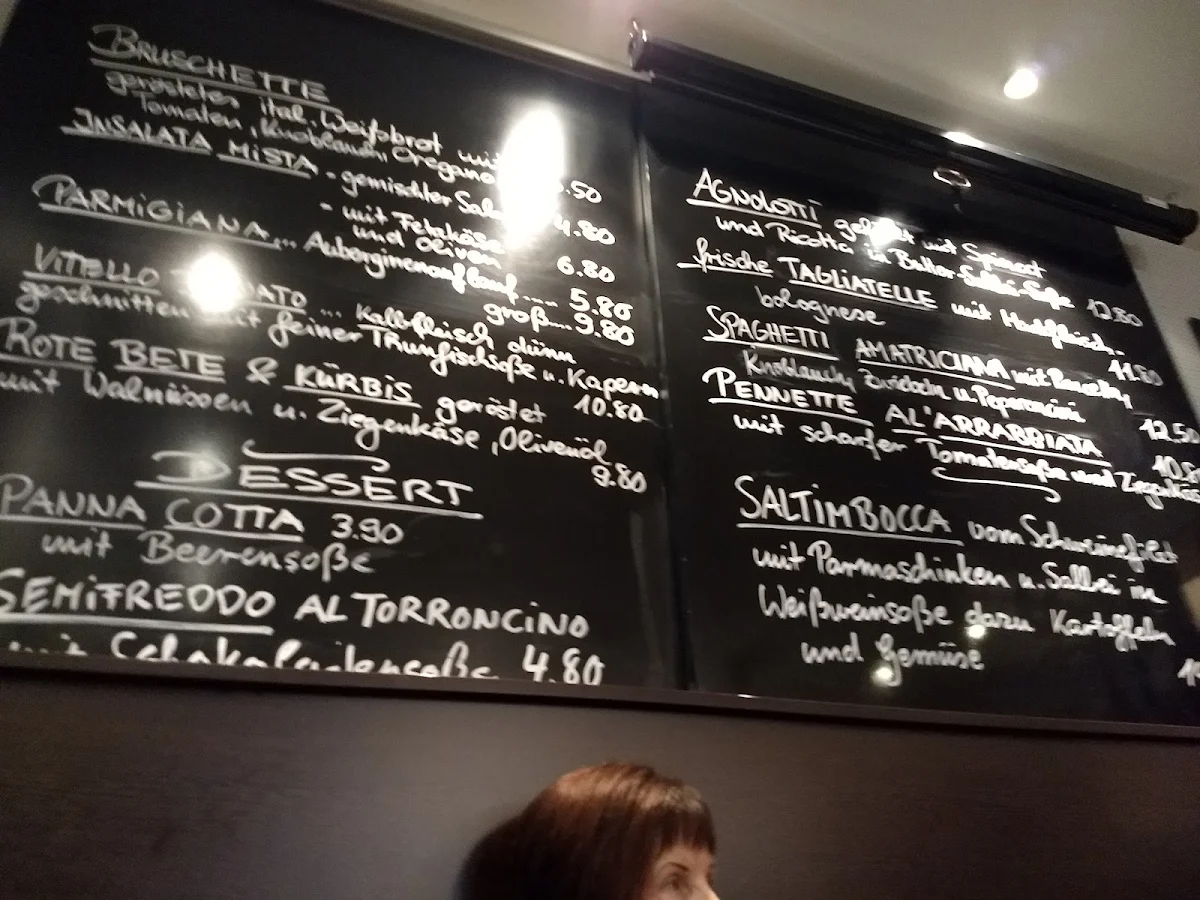 BRUSCHETTE
geröstetes ital. Weißbrot mit
Tomaten, Knoblauch, Oregano .50
INSALATA MISTA - gemischter 4.80
- mit Fetakäse
und Oliven 6.80
PARMIGIANA... Auberginenauflauf.... 5.80
groß... 9.80
VITELLO ... Kalbfleisch dünn
geschnitten mit feiner Thunfischsoße u. Kapern
10.80
ROTE BETE & KÜRBIS geröstet
mit Walnüssen u. Ziegenkäse, Olivenöl
9.80
DESSERT
PANNA COTTA 3.90
mit Beerensoße
SEMIFREDDO AL TORRONCINO
mit Schokoladensoße 4.80
AGNOLOTTI gefüllt mit Spinat
und Ricotta in Butter-Salbei-Soße 12.80
frische TAGLIATELLE mit Hackfleisch,
bolognese 11.80
SPAGHETTI AMATRICIANA mit
Knoblauch, Zwiebeln u. Peperoncini 12.5
PENNETTE AL'ARRABBIATA 10.8
mit scharfer Tomatensoße und
SALTIMBOCCA vom Schweinefilet
mit Parmaschinken u. Salbei in
Weißweinsoße dazu Kartoffeln
und Gemüse